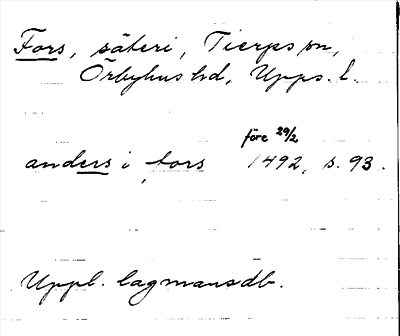 Fors, säteri, Tierps sn,
Örbyhus hd, Upps. l.
före 29/2
anders i fors 1492, s. 93.
Uppl. lagmansdb.